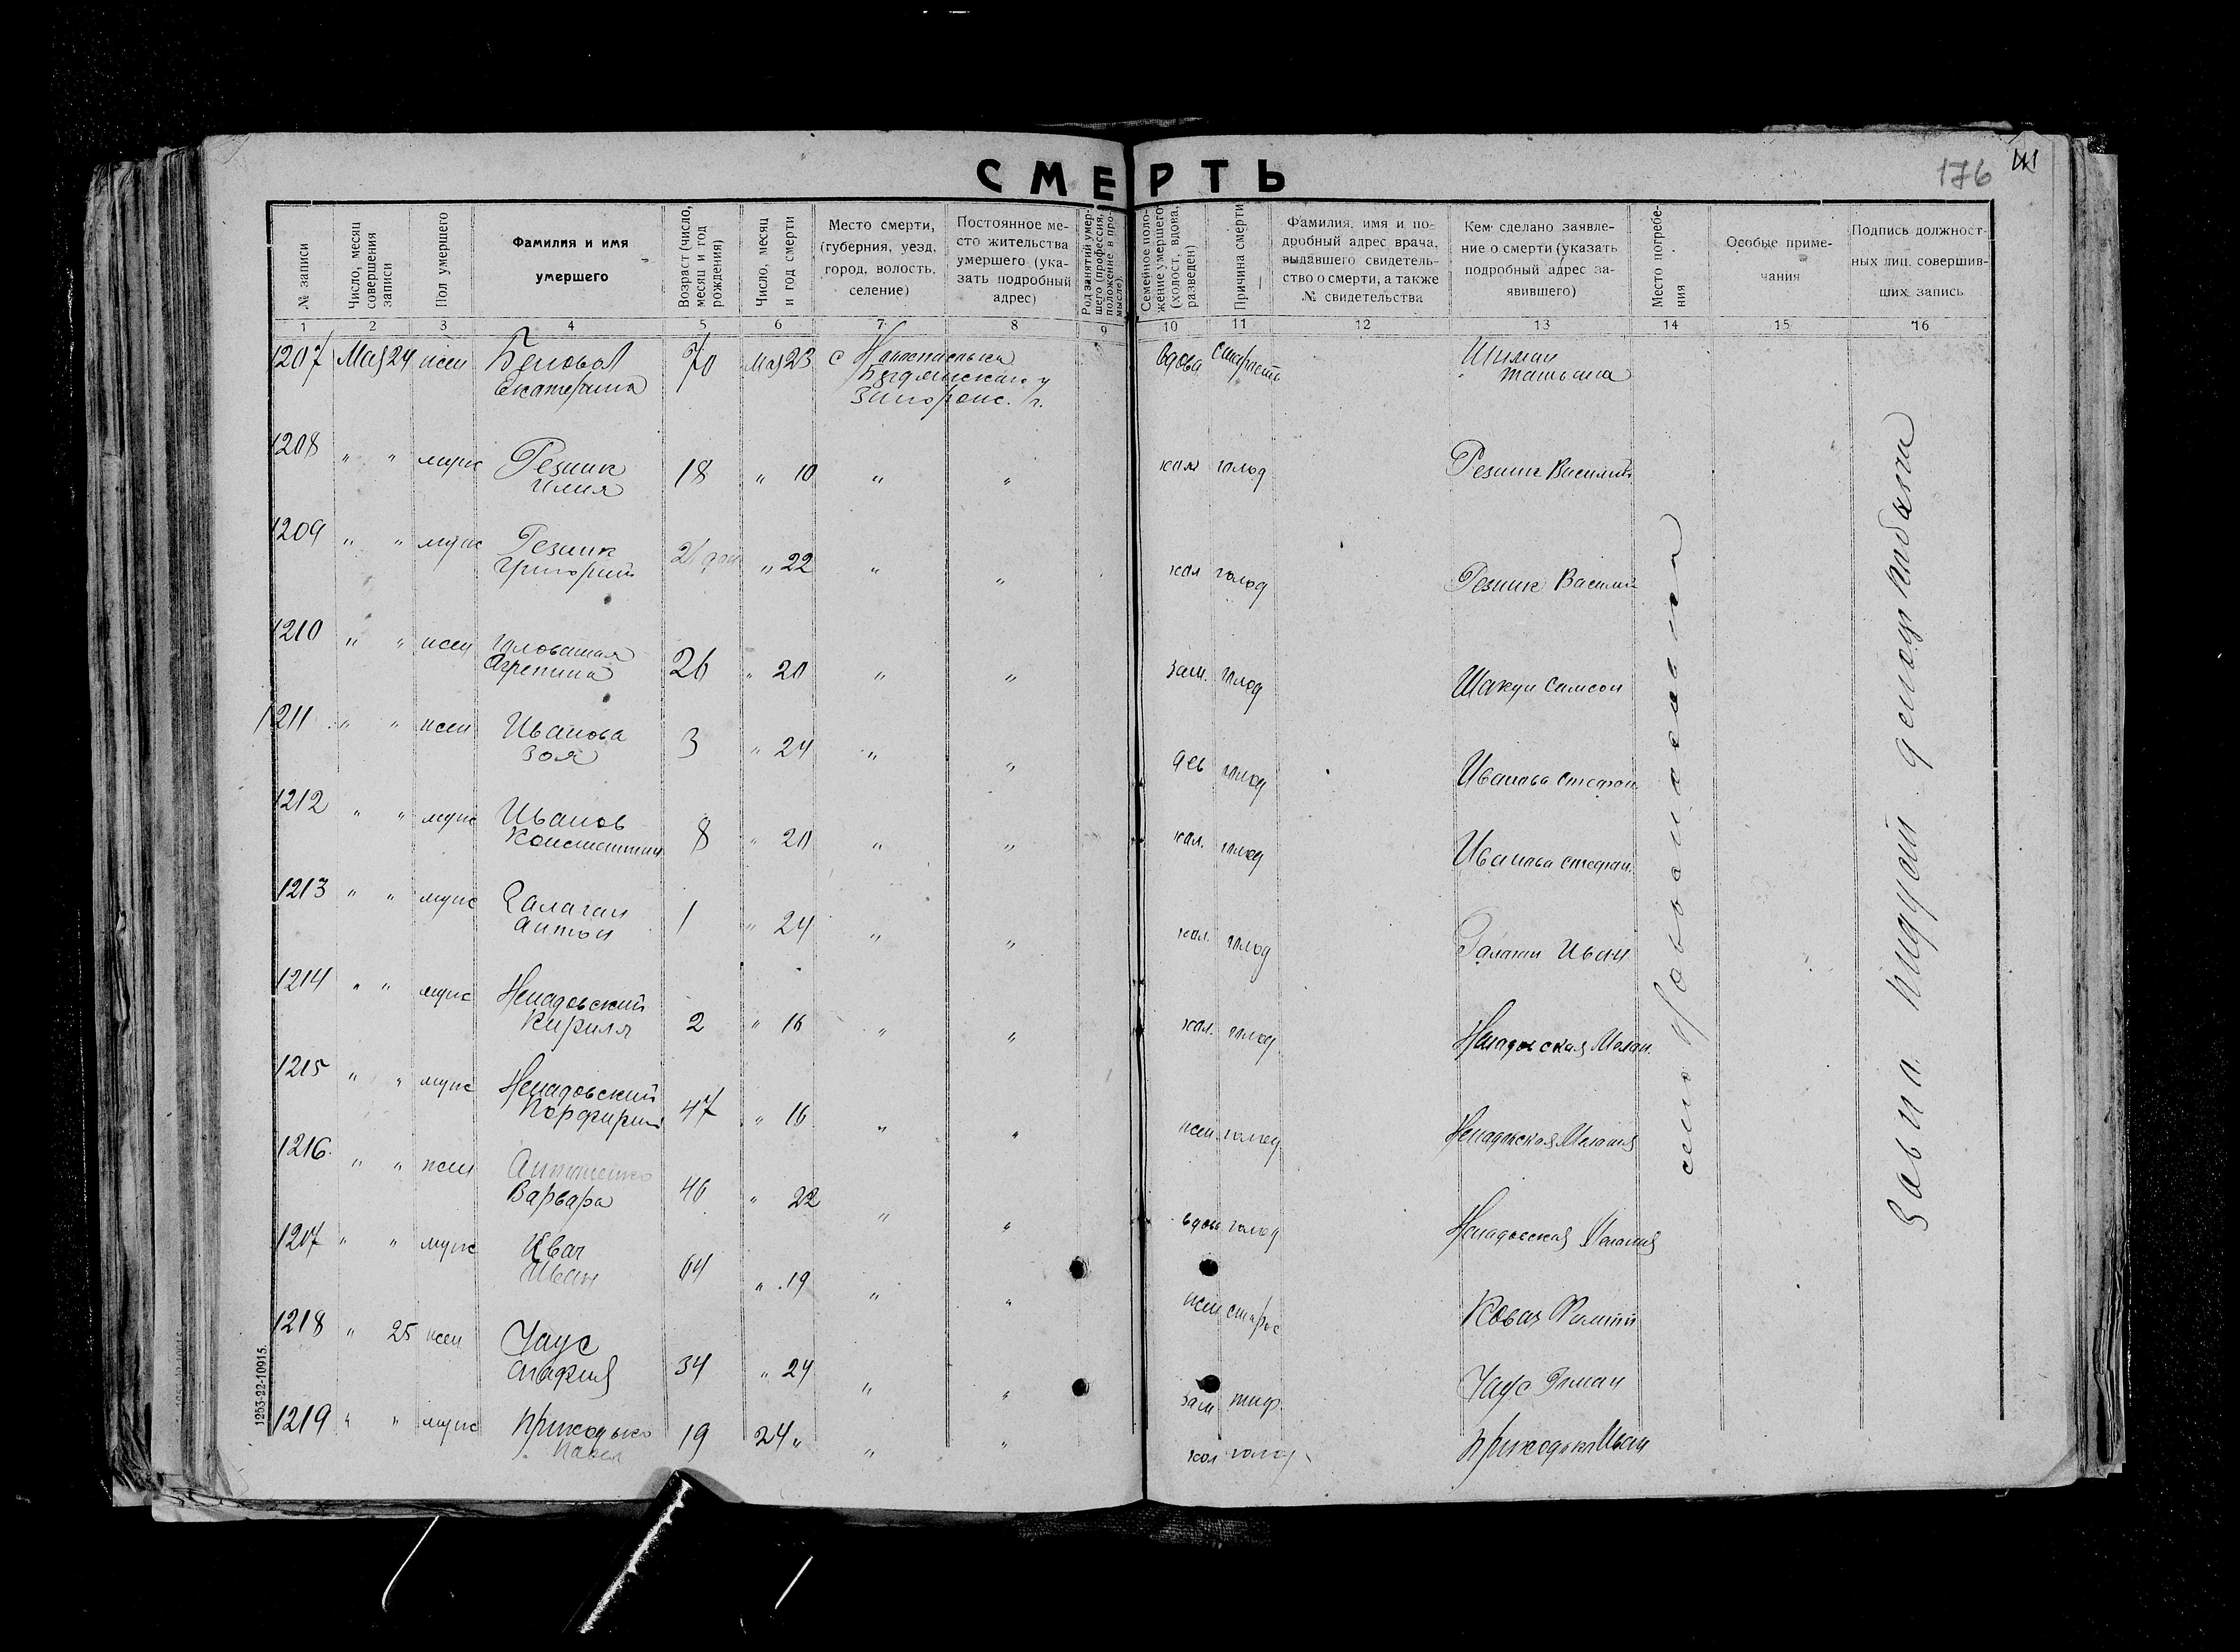 176
СМЕРТЬ
№ записи
Число, месяц совершения записи
Пол умершего
Фамилия и имя умершего
Возраст (число, месяц и год рождения)
Число, месяц и год смерти
Место смерти, (губерния, уезд, город, волость, селение)
Постоянное место жительства умершего (указать подробный адрес)
Род занятий умершего (профессия, положение в промысле)
Семейное положение умершего (холост, вдова, разведен)
Причина смерти
Фамилия, имя и подробный адрес врача, выдавшего свидетельство о смерти, а также № свидетельства
Кем сделано заявление о смерти (указать подробный адрес заявившего)
Место погребения
Особые примечания
Подпись должностных лиц, совершивших запись
1 2 3 4 5 6 7 8 9 10 11 12 13 14 15 16
1207 Мая 24 жен Екатерина 70 Мая 23 с Запорож. г. вдова старость Татьяна
1208 " " муж Резник Илия 18 " 10 " " хол голод Резник Василий
1209 " " муж Резник Григорий " 22 " " хол голод Резник Василий
1210 " " жен Головатая Агрепина 26 " 20 " " зам. голод Шакун Самсон
1211 " " жен Иванова Зоя 3 " 24 " " дев голод Иванова Стефан.
1212 " " муж Иванов Константин 8 " 20 " " хол. голод Иванова Стефан.
1213 " " муж Галаган Антон 1 " 24 " " хол. голод Галаган Иван
1214 " " муж Ненадовский Кирилл 2 " 16 " " хол. голод Ненадовская Мелан.
1215 " " муж Ненадовский Порфирий 47 " 16 " " жен. голод Ненадовская Мелания
1216 " " жен Антоненко Варвара 46 " 22 " " вдов голод Ненадовская Мелания
1217 " " муж Иван 64 " 19 " " жен старос Ковач
1218 " 25 жен Чаус Агафия 34 " 24 " " зам тиф. Чаус Роман
1219 " " муж Приходько Павел 19 24 " " " хол голод Приходько Иван
село
Завпа
1263-22-10915.